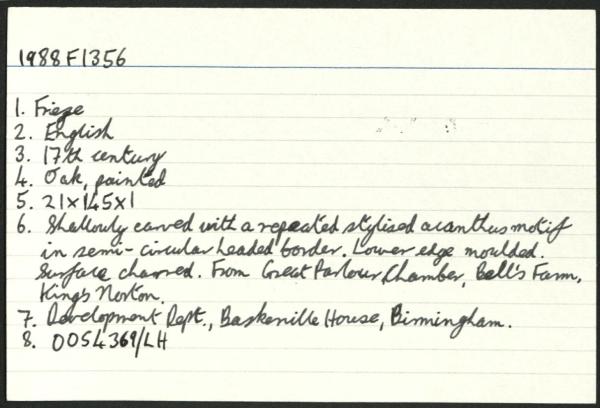 1988F1356
1. Frieze
2. English
3. 17th century
4. Oak, painted
5. 21x145x1
6. Shallowly carved with a repeated stylised acanthus motif
in semi-circular headed border. Lower edge moulded.
Surface charred. From Great Parlour Chamber, Bell's Farm,
King's Norton.
7. Development Dept., Baskerville House, Birmingham.
8. 0054369/LH